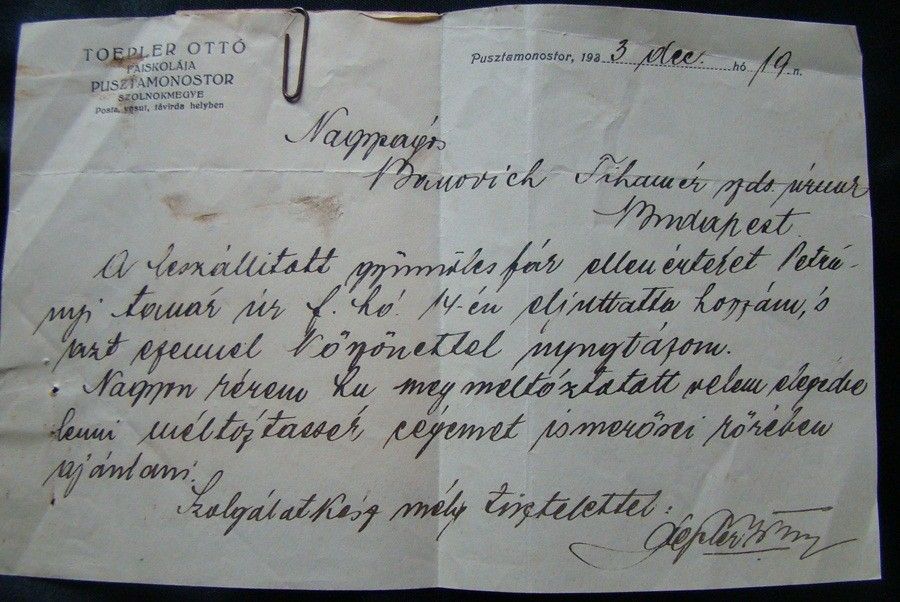 TOEPLER OTTÓ
FAISKOLÁJA
PUSZTAMONOSTOR
SZOLNOKMEGYE
Posta, vasut, távirda helyben
Pusztamonostor, 1933 dec. hó 19. n.
Nagyságos
Banovich Tihamér úrnak
Budapest.
A leszállitott gyümölcsfák ellenértékét Petrá-
nyi tanár úr f. hó 14-én eljuttatta hozzám, s
azt ezennel köszönettel nyugtázom.
Nagyon kérem ha meg méltóztatott velem elégedve
lenni méltóztassék cégemet ismerősei körében
ajánlani.
Szolgálatkész mély tisztelettel:
Toepler Ottó